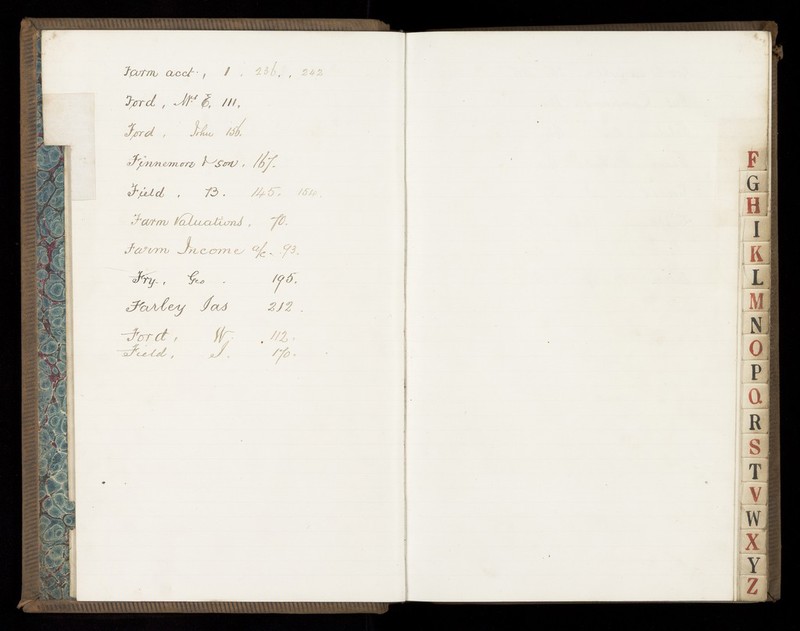 Farm acct., 1. 236., 242
Ford, Mrs E, 111,
Ford, John 156.
Finnemore & son. 167.
Field, B. 145. 154.
Farm Valuations, 70.
Farm Income a/c. 93.
Fry, Geo. 195.
Farley Jas 212.
Ford, W. 112.
Field, J. 170.
F
G
H
I
K
L
M
N
O
P
Q
R
S
T
V
W
X
Y
Z